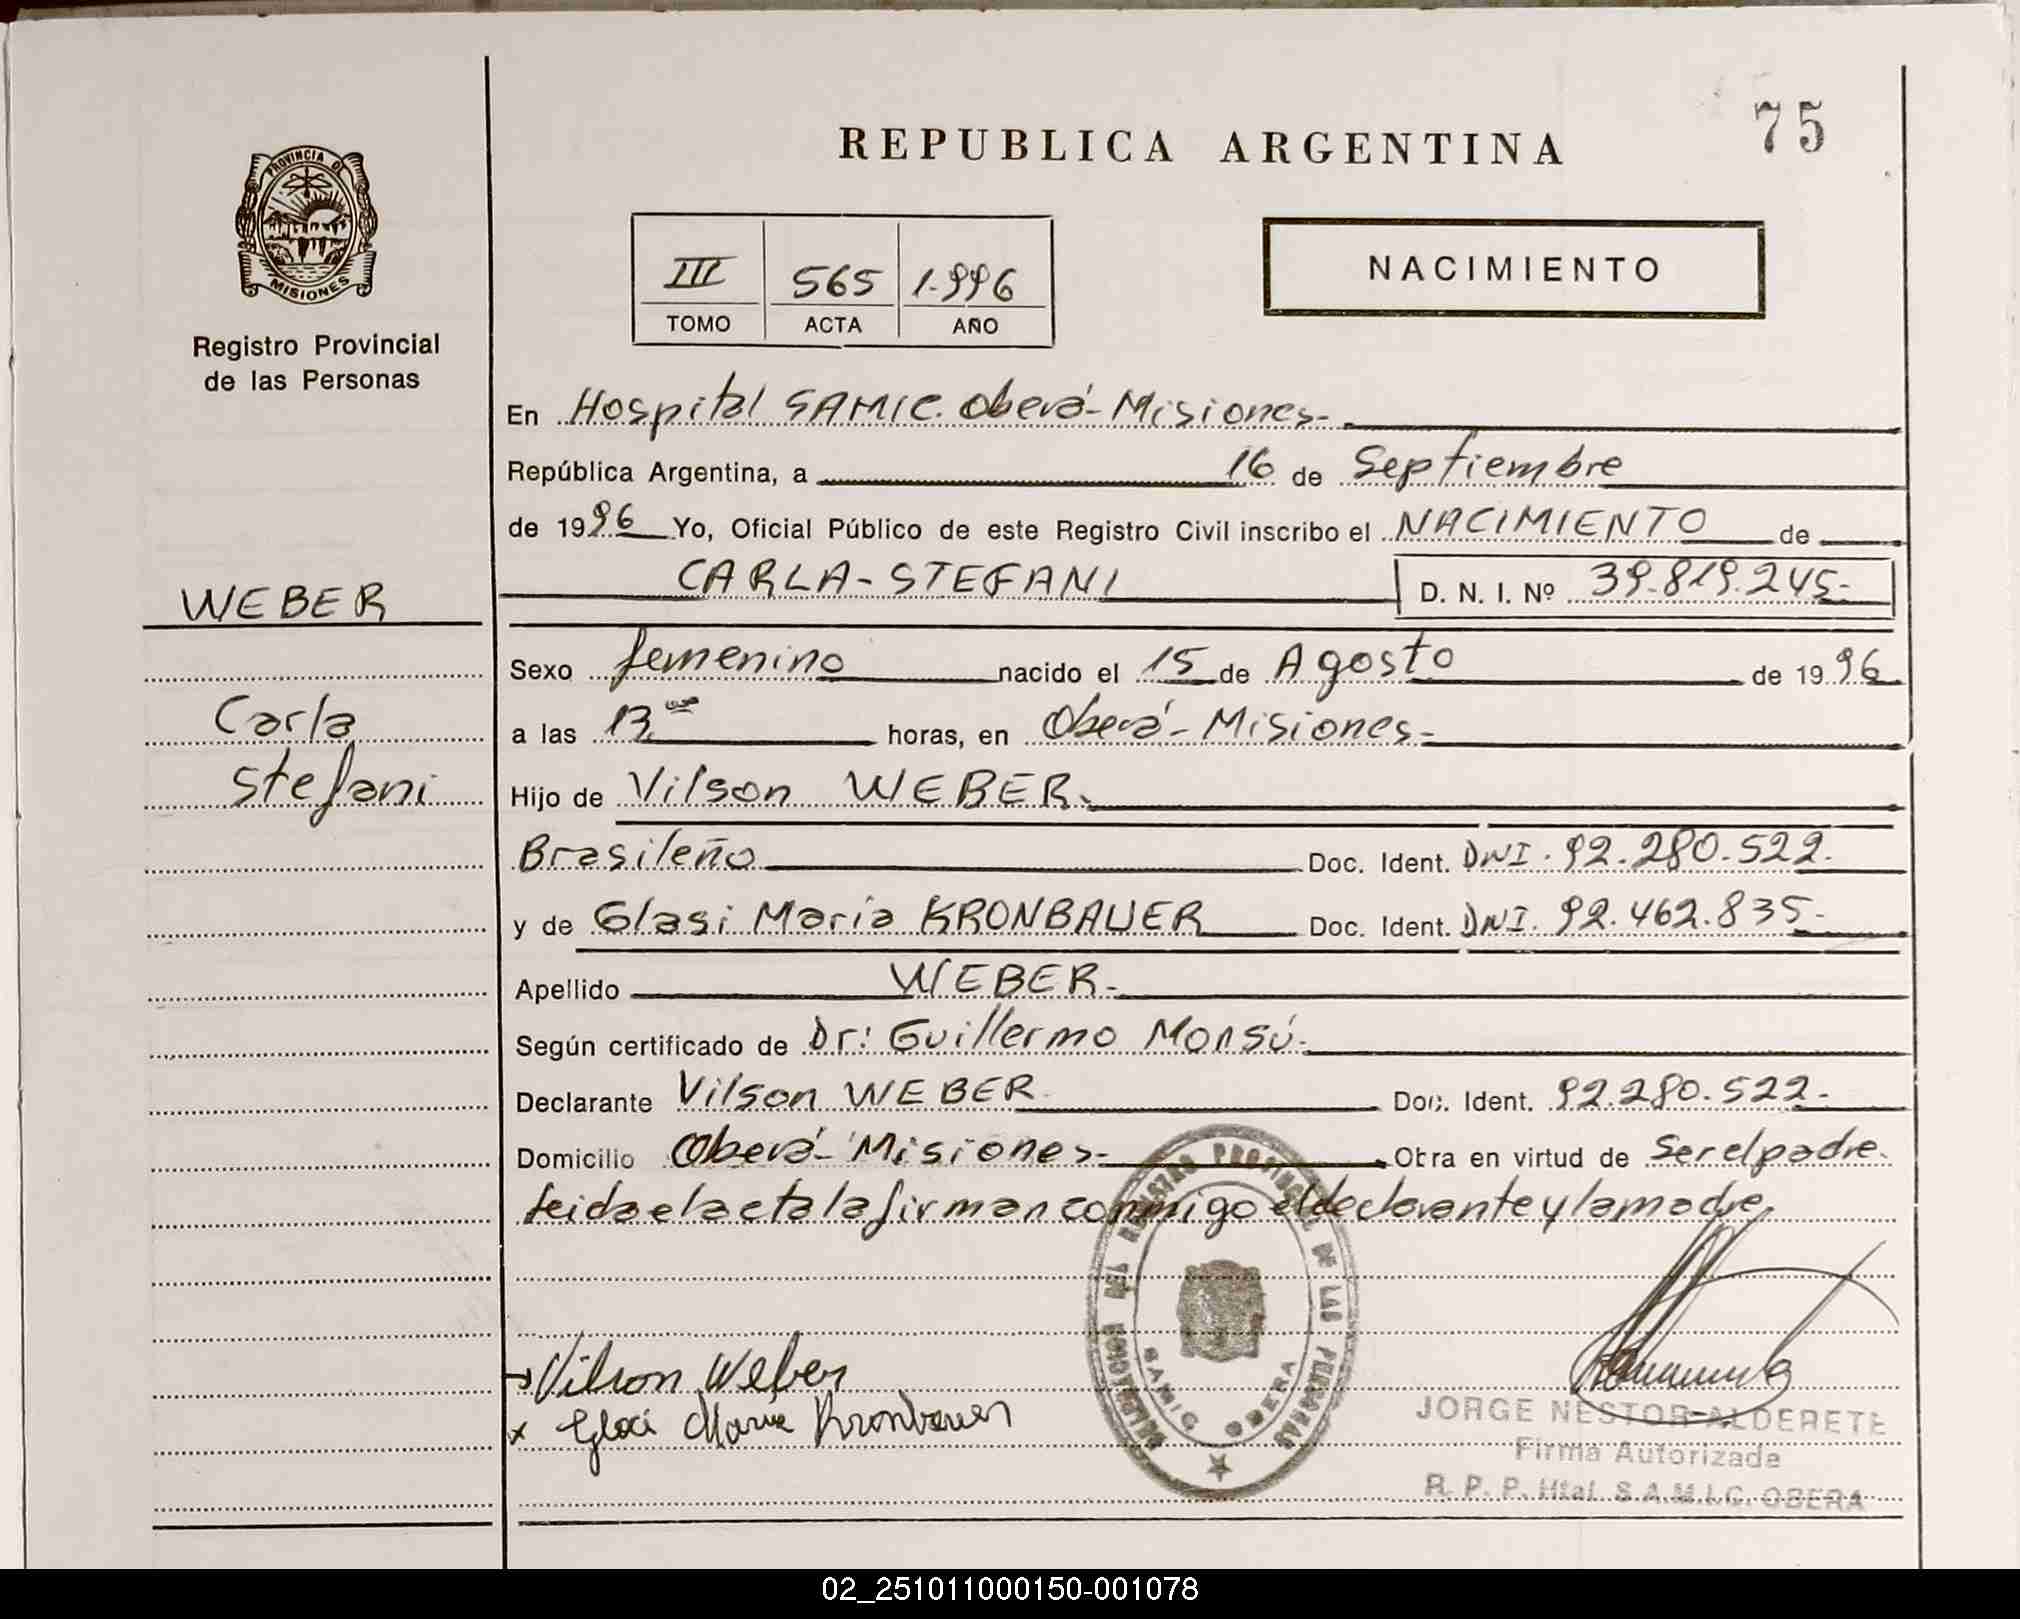 75
REPUBLICA ARGENTINA
PROVINCIA DE
MISIONES
Registro Provincial
de las Personas
III 565 1.996
TOMO ACTA AÑO
NACIMIENTO
En Hospital SAMIC. Oberá-Misiones-
República Argentina, a 16 de Septiembre
de 1996 Yo, Oficial Público de este Registro Civil inscribo el NACIMIENTO de
CARLA-STEFANI D. N. I. Nº 39.819.245-
WEBER
Sexo femenino nacido el 15 de Agosto de 1996
Carla
a las 13. horas, en Oberá-Misiones-
Stefani
Hijo de Vilson WEBER.
Brasileño Doc. Ident. DNI. 92.280.522.
y de Glasi Maria KRONBAUER Doc. Ident. DNI. 92.462.835-
Apellido WEBER-
Según certificado de Dr: Guillermo Monsú-
Declarante Vilson WEBER Doc. Ident. 92.280.522-
Domicilio Oberá-Misiones- Obra en virtud de Ser el padre
leida el acta la firman conmigo el declarante y la madre
DEL REGISTRO PROVINCIAL DE LAS PERSONAS
SAMIC OBERA
Vilson Weber
x Glaci Maria Kronbauer
JORGE NESTOR ALDERETE
Firma Autorizada
R. P. P. Htal. S.A.M.I.C. OBERA
02_251011000150-001078